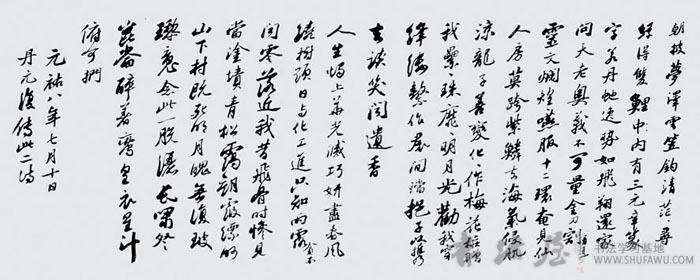 朝披夢澤雲笠釣清茫〻尋
絲得雙鯉中内有三元章篆
字若丹虵逸勢如飛翔還家
問天老奥義不可量金刀割
靈文爛煌〻嚥服十二環奄見仙
人房莫跨紫鱗去海氣侵肌
涼龍子善變化〻作梅花粧贈
我纍〻珠靡〻明月光勸我穿
絳縷繫作裙間襠挹子以攜
去談笑聞遺香
人生燭上華光滅巧妍盡春風
繞樹頭日與化工進只知雨露貪不
聞零落近我昔飛骨時慘見
當塗墳青松靄朝霞縹緲
山下村既死明月魄無復玻
瓈魂念此一脱灑長嘯登
崑崙醉著鸞皇衣星斗
俯可捫
元祐八年七月十日
丹元復傳此二詩
书法学习基地
WWW.SHUFAWU.COM